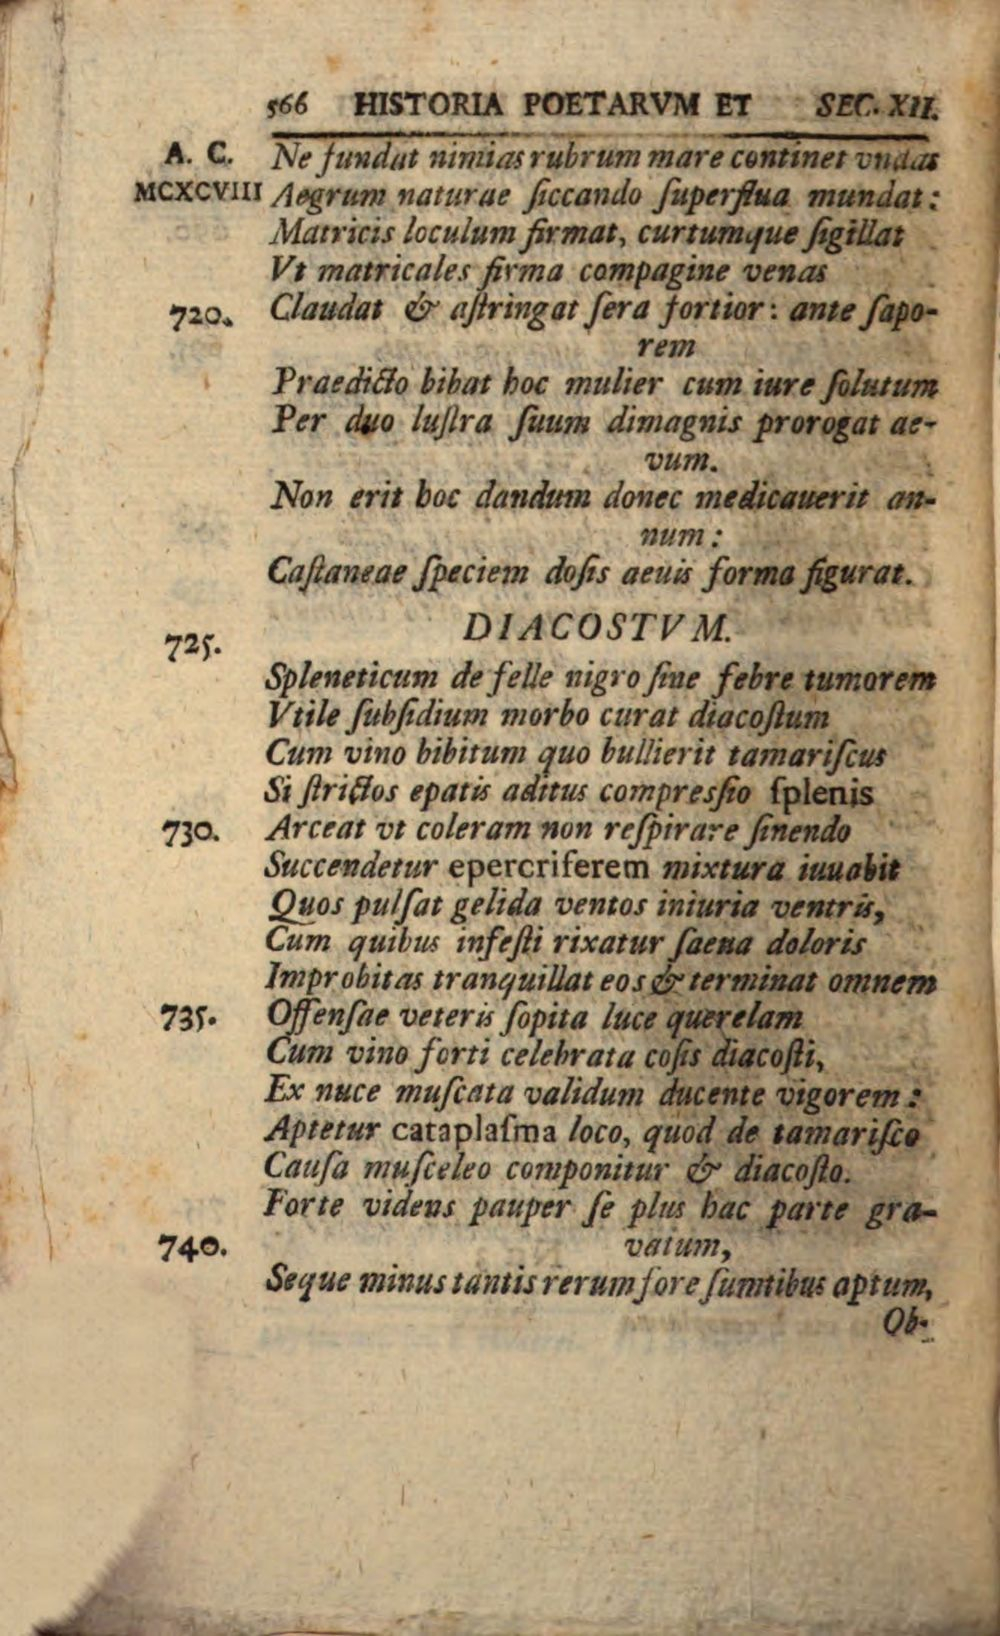 566 HISTORIA POETARVM ET SEC. XII.
A. C. Ne fundat nimias rubrum mare continet vndas
MCXCVIII Aegrum naturae ſiccando ſuperflua mundat:
Matricis loculum firmat, curtumque ſigillat
Vt matricales firma compagine venas
720. Claudat & aſtringat ſera fortior: ante ſapo-
rem
Praedicto bibat hoc mulier cum iure ſolutum
Per duo luſtra ſuum dimagnis prorogat ae-
vum.
Non erit hoc dandum donec medicauerit an-
num:
Caſtaneae ſpeciem doſis aeuis forma figurat.
DIACOSTVM.
725.
Spleneticum de felle nigro ſine febre tumorem
Vtile ſubſidium morbo curat diacoſtum
Cum vino bibitum quo bullierit tamariſcus
Si ſtrictos epatis aditus compresſio ſplenis
730. Arceat vt coleram non reſpirare ſinendo
Succendetur epercriferem mixtura iuuabit
Quos pulſat gelida ventos iniuria ventris,
Cum quibus infeſti rixatur ſaeua doloris
Improbitas tranquillat eos & terminat omnem
735. Offenſae veteris ſopita luce querelam
Cum vino forti celebrata coſis diacoſti,
Ex nuce muſcata validum ducente vigorem:
Aptetur cataplaſma loco, quod de tamariſco
Cauſa muſceleo componitur & diacoſto.
Forte videns pauper ſe plus hac parte gra-
740. vatum,
Seque minus tantis rerum fore ſumtibus aptum,
Ob-